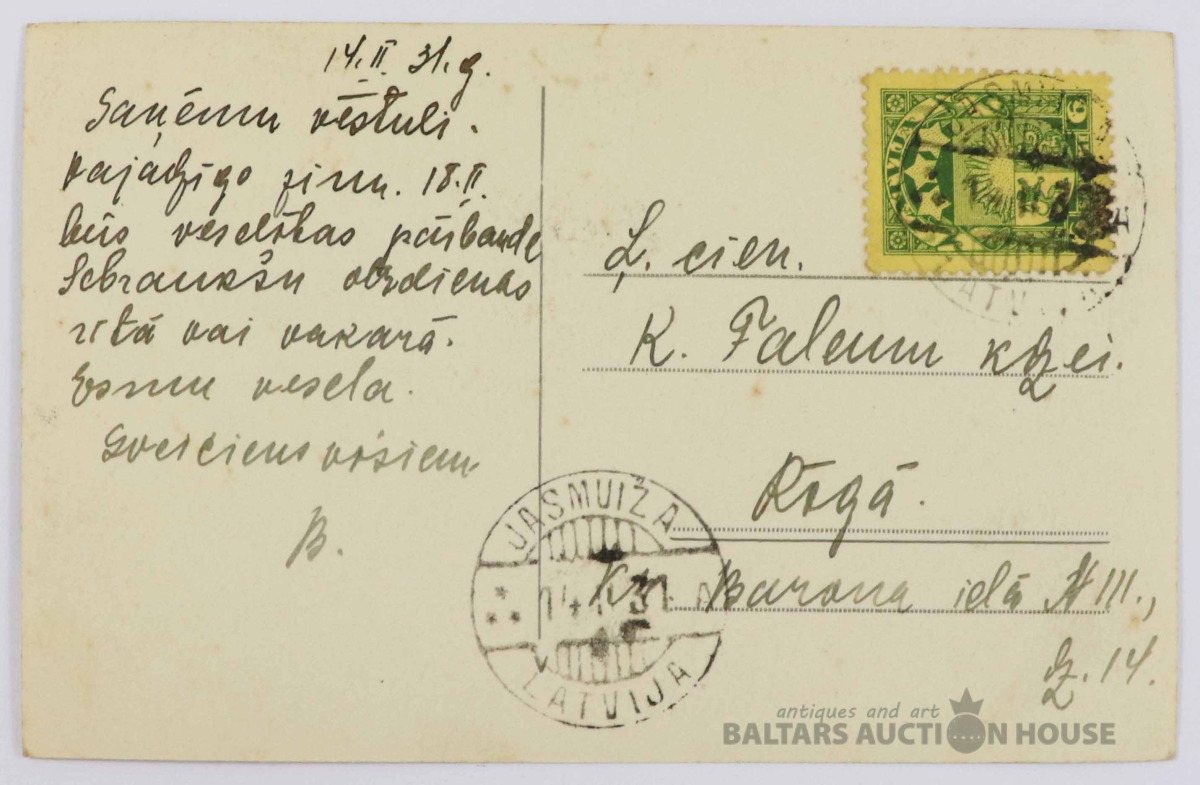 14.II 31.g.
Saņēmu vēstuli.
vajadzīgo ziņu. 18.II
būs veselības pārbaude
Sebraukšu otrdienas
rītā vai vakarā.
Esmu vesela.
Sveiciens visiem
B.
Ļ. cien.
K. Falemu kdzei.
Rīgā.
Kr. Barona ielā N III.,
dz. 14.
LATVIJA
LATVIJA
JASMUIŽA
14 31 A
LATVIJA
antiques and art
BALTARS AUCTION HOUSE